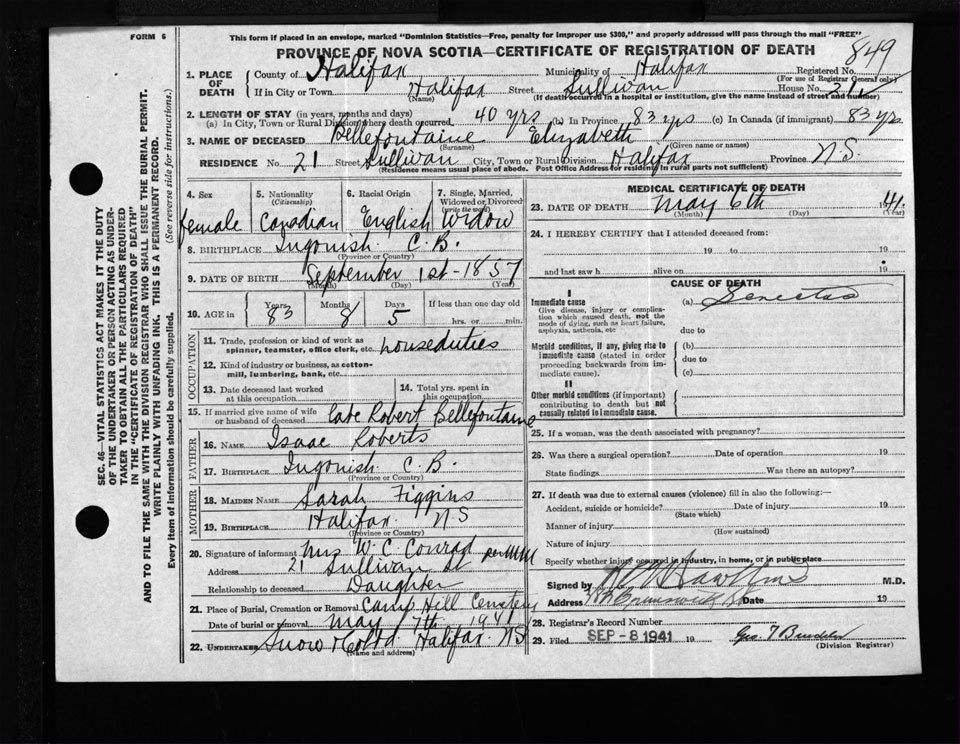 FORM 6
This form if placed in an envelope, marked "Dominion Statistics—Free, penalty for improper use $300," and properly addressed will pass through the mail "FREE"
PROVINCE OF NOVA SCOTIA—CERTIFICATE OF REGISTRATION OF DEATH
849
1. PLACE OF DEATH
County of Halifax Municipality of Halifax Registered No.
(For use of Registrar General only)
If in City or Town Halifax Street Sullivan House No. 21
(Name) (If death occurred in a hospital or institution, give the name instead of street and number)
2. LENGTH OF STAY (in years, months and days)
(a) In City, Town or Rural Division where death occurred. 40 yrs (b) In Province 83 yrs (c) In Canada (if immigrant) 83 yrs
3. NAME OF DECEASED Bellefontaine Elizabeth
(Surname) (Given name or names)
RESIDENCE No. 21 Street Sullivan City, Town or Rural Division Halifax Province N.S.
(Residence means usual place of abode. Post Office Address for residents in rural parts not sufficient)
4. Sex Female
5. Nationality (Citizenship) Canadian
6. Racial Origin English
7. Single, Married, Widowed or Divorced (write the word) Widow
8. BIRTHPLACE Ingonish C.B.
(Province or Country)
9. DATE OF BIRTH September 1st-1857
(Month) (Day) (Year)
10. AGE in Years 83 Months 8 Days 5 If less than one day old hrs. or min.
OCCUPATION
11. Trade, profession or kind of work as spinner, teamster, office clerk, etc. houseduties
12. Kind of industry or business, as cotton-mill, lumbering, bank, etc.
13. Date deceased last worked at this occupation
14. Total yrs. spent in this occupation
15. If married give name of wife or husband of deceased late Robert Bellefontaine
FATHER
16. NAME Isaac Roberts
17. BIRTHPLACE Ingonish C.B.
(Province or Country)
MOTHER
18. MAIDEN NAME Sarah Figgins
19. BIRTHPLACE Halifax NS
(Province or Country)
20. Signature of informant Mrs W. C. Conrad per
Address 21 Sullivan St
Relationship to deceased Daughter
21. Place of Burial, Cremation or Removal Camp Hill Cemetery
Date of burial or removal May 7th 1941
22. UNDERTAKER Snow & Co Ltd Halifax NS
(Name and address)
MEDICAL CERTIFICATE OF DEATH
23. DATE OF DEATH May 6th 1941
(Month) (Day) (Year)
24. I HEREBY CERTIFY that I attended deceased from:
19 to 19
and last saw h alive on 19
CAUSE OF DEATH
I
Immediate cause (a) Senectas
Give disease, injury or complication which caused death, not the mode of dying, such as heart failure, asphyxia, asthenia, etc
due to
Morbid conditions, if any, giving rise to immediate cause (stated in order proceeding backwards from immediate cause).
(b)
due to
(c)
II
Other morbid conditions (if important) contributing to death but not causally related to immediate cause.
25. If a woman, was the death associated with pregnancy?
26. Was there a surgical operation? Date of operation 19
State findings Was there an autopsy?
27. If death was due to external causes (violence) fill in also the following:—
Accident, suicide or homicide? Date of injury 19
(State which)
Manner of injury
(How sustained)
Nature of injury
Specify whether injury occurred in industry, in home, or in public place
Signed by M.D.
Address Brunswick St Date 19
28. Registrar's Record Number
29. Filed SEP - 8 1941 19
(Division Registrar)
SEC. 46—VITAL STATISTICS ACT MAKES IT THE DUTY
OF THE UNDERTAKER OR PERSON ACTING AS UNDER-
TAKER TO OBTAIN ALL THE PARTICULARS REQUIRED
IN THE "CERTIFICATE OF REGISTRATION OF DEATH"
AND TO FILE THE SAME WITH THE DIVISION REGISTRAR WHO SHALL ISSUE THE BURIAL PERMIT.
WRITE PLAINLY WITH UNFADING INK. THIS IS A PERMANENT RECORD.
Every item of information should be carefully supplied. (See reverse side for instructions.)